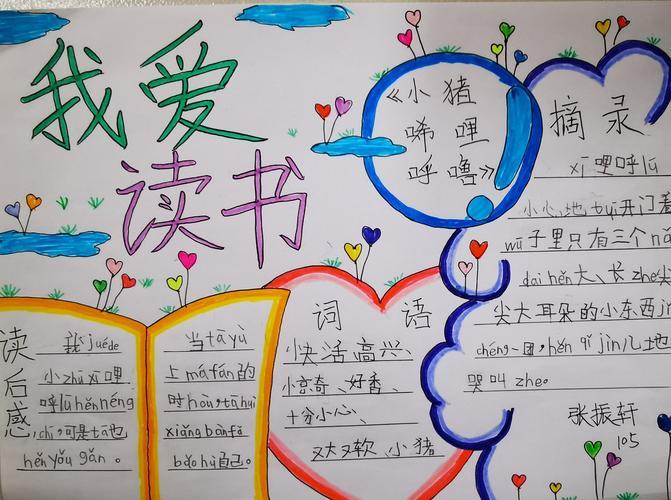 我爱
读书
《小猪
唏哩
呼噜》
摘录
xī哩呼lū
小心地
开门
wū子里只有三个
dai hěn大、长zhe
尖大耳朵的小东西
chéng一团,hěn qǐ jìn儿地
哭叫zhe。
张振轩
105
词语
快活高兴、
惊奇、好香、
十分小心、
又大又软、小猪
读后感
我juéde
小zhū xī哩
呼lū hěn néng
chī,可是tā也
hěn yǒu gǎn。
当tā yù
上má fán的
时hòu,tā huì
xiǎng bàn fǎ
bǎo hù自己。